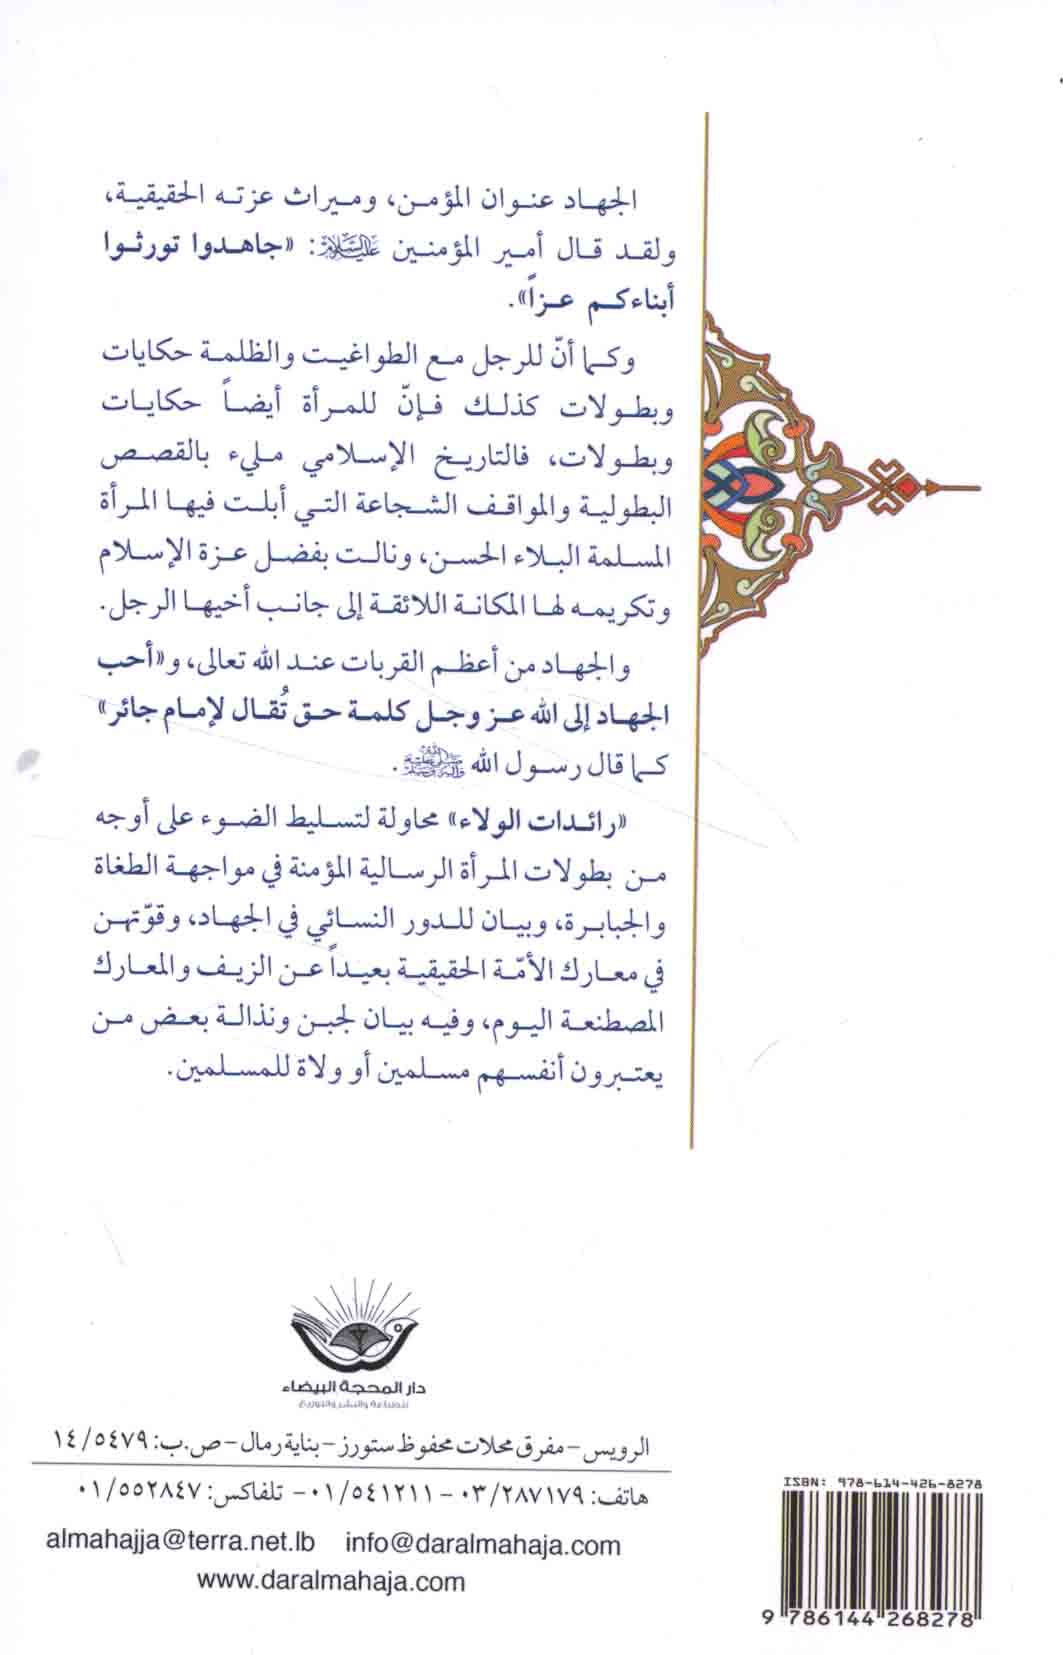 الجهاد عنوان المؤمن، وميراث عزته الحقيقية،
ولقد قال أمير المؤمنين عليه السلام: «جاهدوا تورثوا
أبناءكم عزاً».
وكما أنّ للرجل مع الطواغيت والظلمة حكايات
وبطولات كذلك فإنّ للمرأة أيضاً حكايات
وبطولات، فالتاريخ الإسلامي مليء بالقصص
البطولية والمواقف الشجاعة التي أبلت فيها المرأة
المسلمة البلاء الحسن، ونالت بفضل عزة الإسلام
وتكريمه لها المكانة اللائقة إلى جانب أخيها الرجل.
والجهاد من أعظم القربات عند الله تعالى، و«أحب
الجهاد إلى الله عز وجل كلمة حق تُقال لإمام جائر»
كما قال رسول الله صلى الله عليه وآله وسلم.
«رائدات الولاء» محاولة لتسليط الضوء على أوجه
من بطولات المرأة الرسالية المؤمنة في مواجهة الطغاة
والجبابرة، وبيان للدور النسائي في الجهاد، وقوّتهن
في معارك الأمّة الحقيقية بعيداً عن الزيف والمعارك
المصطنعة اليوم، وفيه بيان لجبن ونذالة بعض من
يعتبرون أنفسهم مسلمين أو ولاة للمسلمين.
دار المحجة البيضاء
للطباعة والنشر والتوزيع
الرويس - مفرق محلات محفوظ ستورز - بناية رمال - ص.ب: ١٤/٥٤٧٩
هاتف: ٠٣/٢٨٧١٧٩ - ٠١/٥٤١٢١١ - تلفاكس: ٠١/٥٥٢٨٤٧
almahajja@terra.net.lb info@daralmahaja.com
www.daralmahaja.com
ISBN: 978-614-426-8278
9 786144 268278